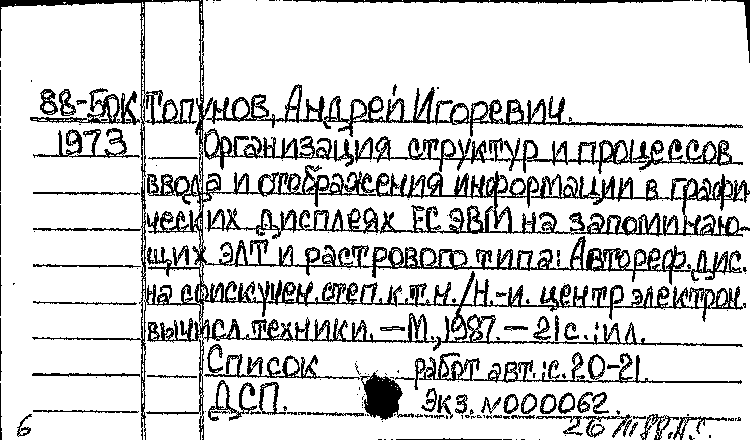 88-50К Топунов, Андрей Игоревич.
1973 Организация структур и процессов
ввода и отображения информации в графи-
ческих дисплеях ЕС ЭВМ на запоминаю-
щих ЭЛТ и растрового типа: Автореф. дис.
на соиск. учен. степ. к.т.н./Н.-и. центр электрон.
вычисл. техники. — М., 1987. — 21 с.: ил.
Список работ авт.: с. 20-21.
ДСП. Экз. N000062.
6